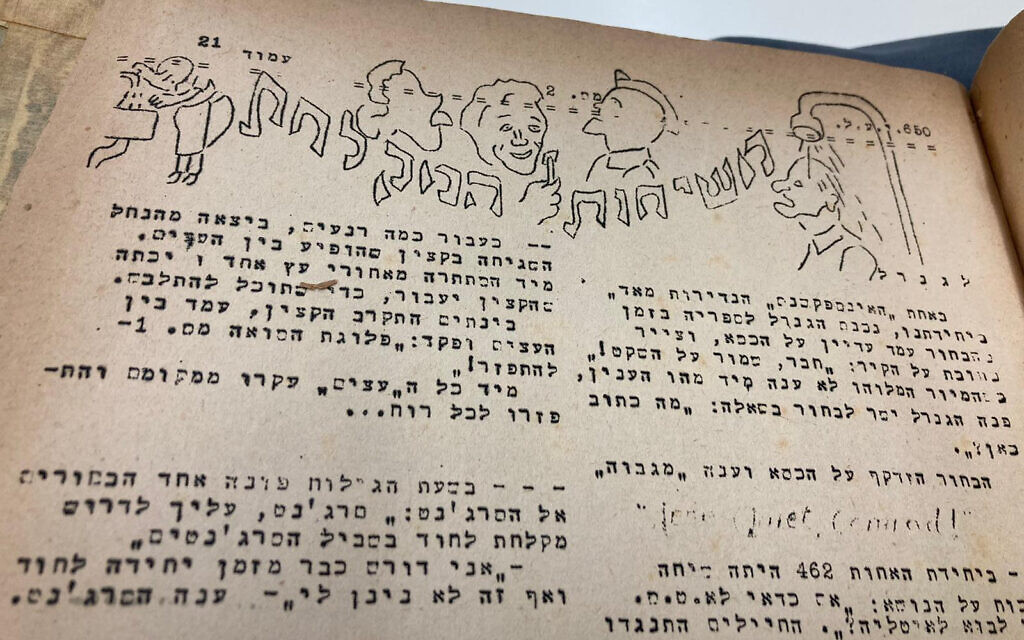 עמוד 21
מס. 2
לגנרל
באחת "האינספקשנס" הנדירות מאד
ביחידתנו, נכנס הגנרל לספריה בזמן
הבחור עמד עדיין על הכסא, וצייר
כתובת על הקיר: "חבר, שמור על השקט!"
המיור המלוהו לא ענה מיד מהו הענין,
פנה הגנרל ישר לבחור בשאלה: "מה כתוב
כאן?".
הבחור הזדקף על הכסא וענה "מגבוה"
Quiet, Comrad!"
- ביחידת האחות 462 היתה שיחה
על הנושא: "אם כדאי לא.ט.ס.
לבוא לאיטליה?". החיילים התנגדו
-- כעבור כמה רגעים, ביצאה מהנחל
השגיחה בקצין שהופיע בין העצים.
מיד הסתתרה מאחורי עץ אחד ו יכתה
שהקצין יעבור, כדי שתוכל להתלבש.
בינתים התקרב הקצין, עמד בין
העצים ופקד: "פלוגת הסואה מס. 1-
להתפזר!"
מיד כל ה"עצים" עקרו ממקומם והת-
פזרו לכל רוח...
- - - בשעת הגילוח פונה אחד הבחורים
אל הסרג'נט: "סרג'נט, עליך לדרוש
מקלחת לחוד בשביל הסרג'נטים"
-"אני דורש כבר מזמן יחידה לחוד
ואף זה לא ניתן לי"- ענה הסרג'נט.